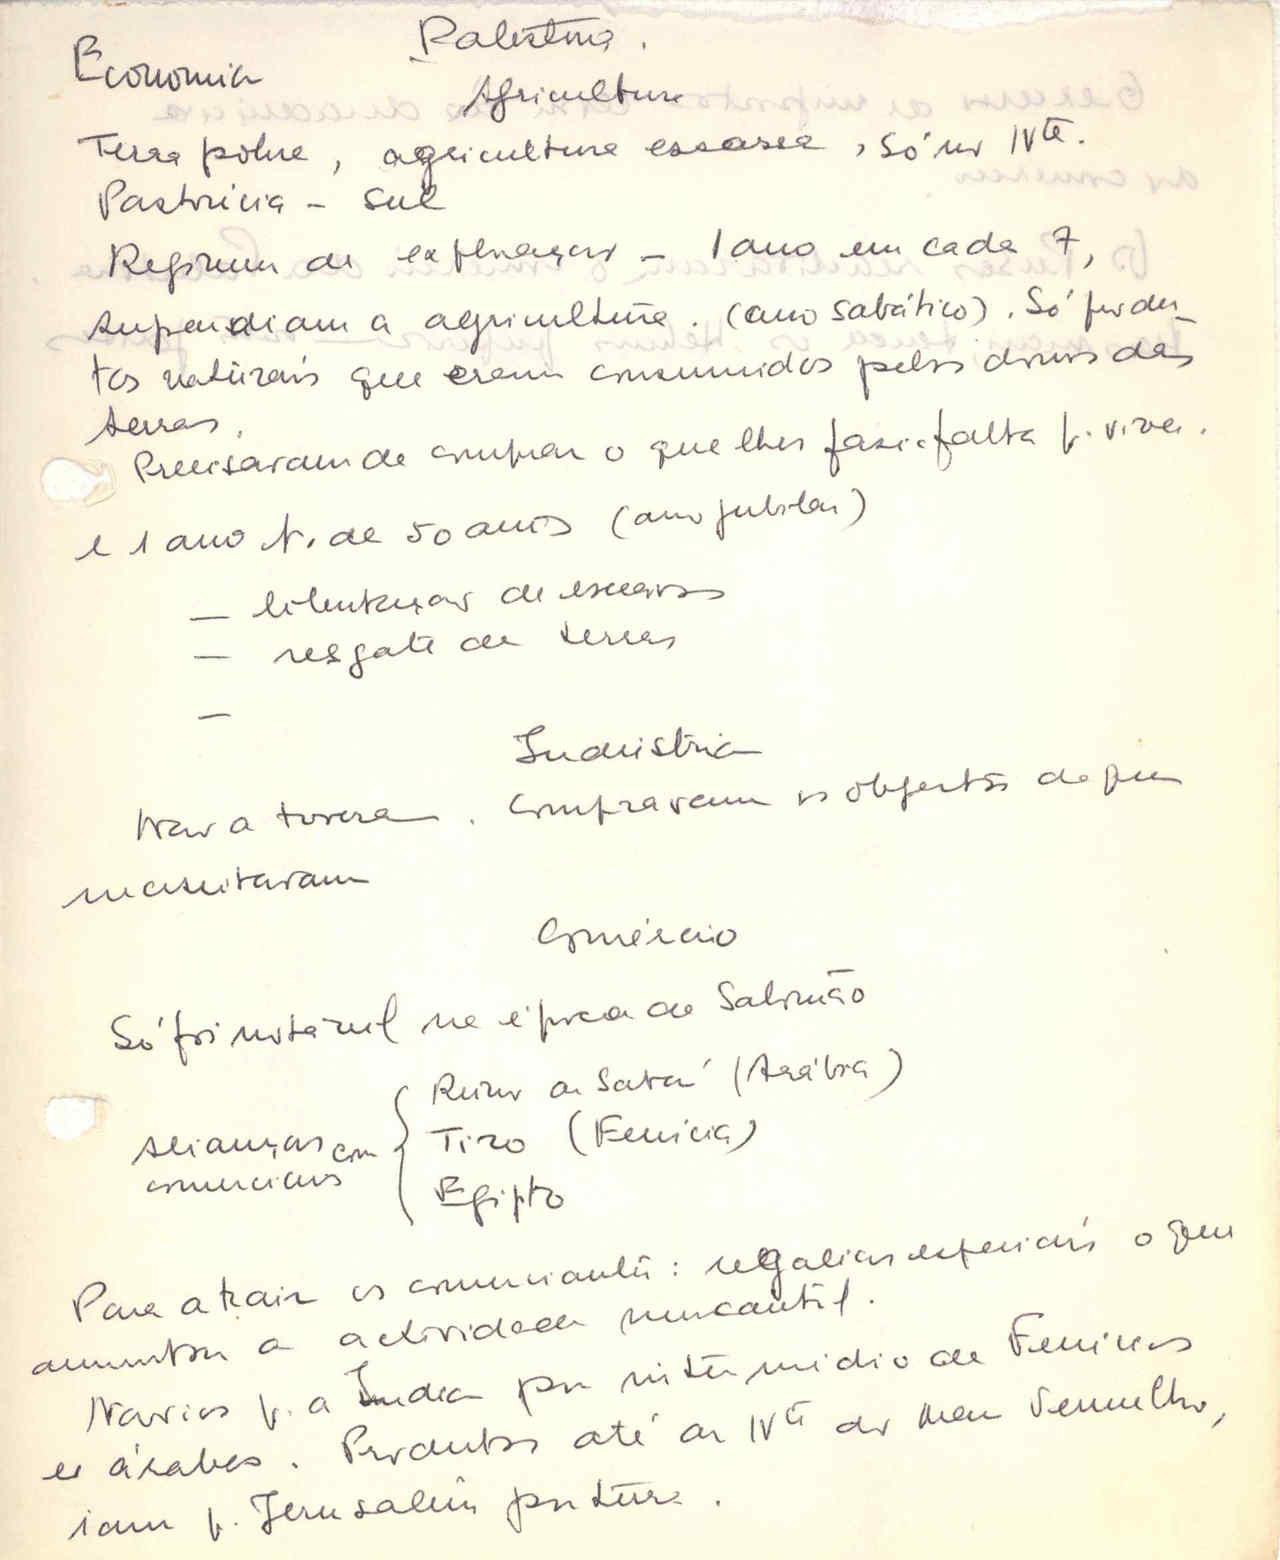 Palestina.
Economia
Agricultura
Terra pobre, agricultura escassa, só no Nte.
Pastorícia - Sul
Regimen de exploração - 1 ano em cada 7,
suspendiam a agricultura. (ano sabático). Só produ-
tos naturais que eram consumidos pelos donos das
terras.
Precisavam de comprar o que lhes fazia falta p. viver.
e 1 ano N. de 50 anos (ano jubilar)
- libertação de escravos
- resgate de terras
-
Indústria
Não a tiveram. Compravam os objectos de que
necessitavam
Comércio
Só foi notável na época de Salomão
Alianças com
comerciais
Reino de Sabá (Arábia)
Tiro (Fenícia)
Egipto
Para atrair os comerciantes: regalias especiais o que
aumentou a actividade mercantil.
Navios p. a Índia por intermédio de Fenícios
e árabes. Produtos até ao Nte do Mar Vermelho,
iam p. Jerusalém por terra.